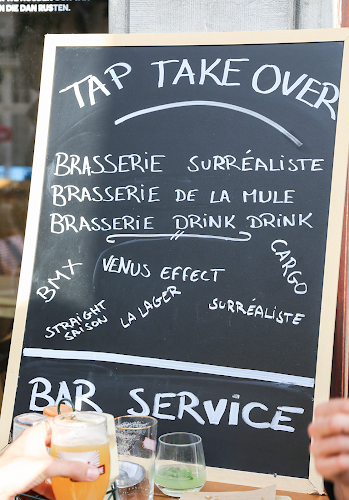 EN DIE DAN RUSTEN.
TAP TAKE OVER
BRASSERIE SURRÉALISTE
BRASSERIE DE LA MULE
BRASSERIE DRINK DRINK
BMX VENUS EFFECT CARGO
STRAIGHT SAISON LA LAGER SURRÉALISTE
BAR SERVICE